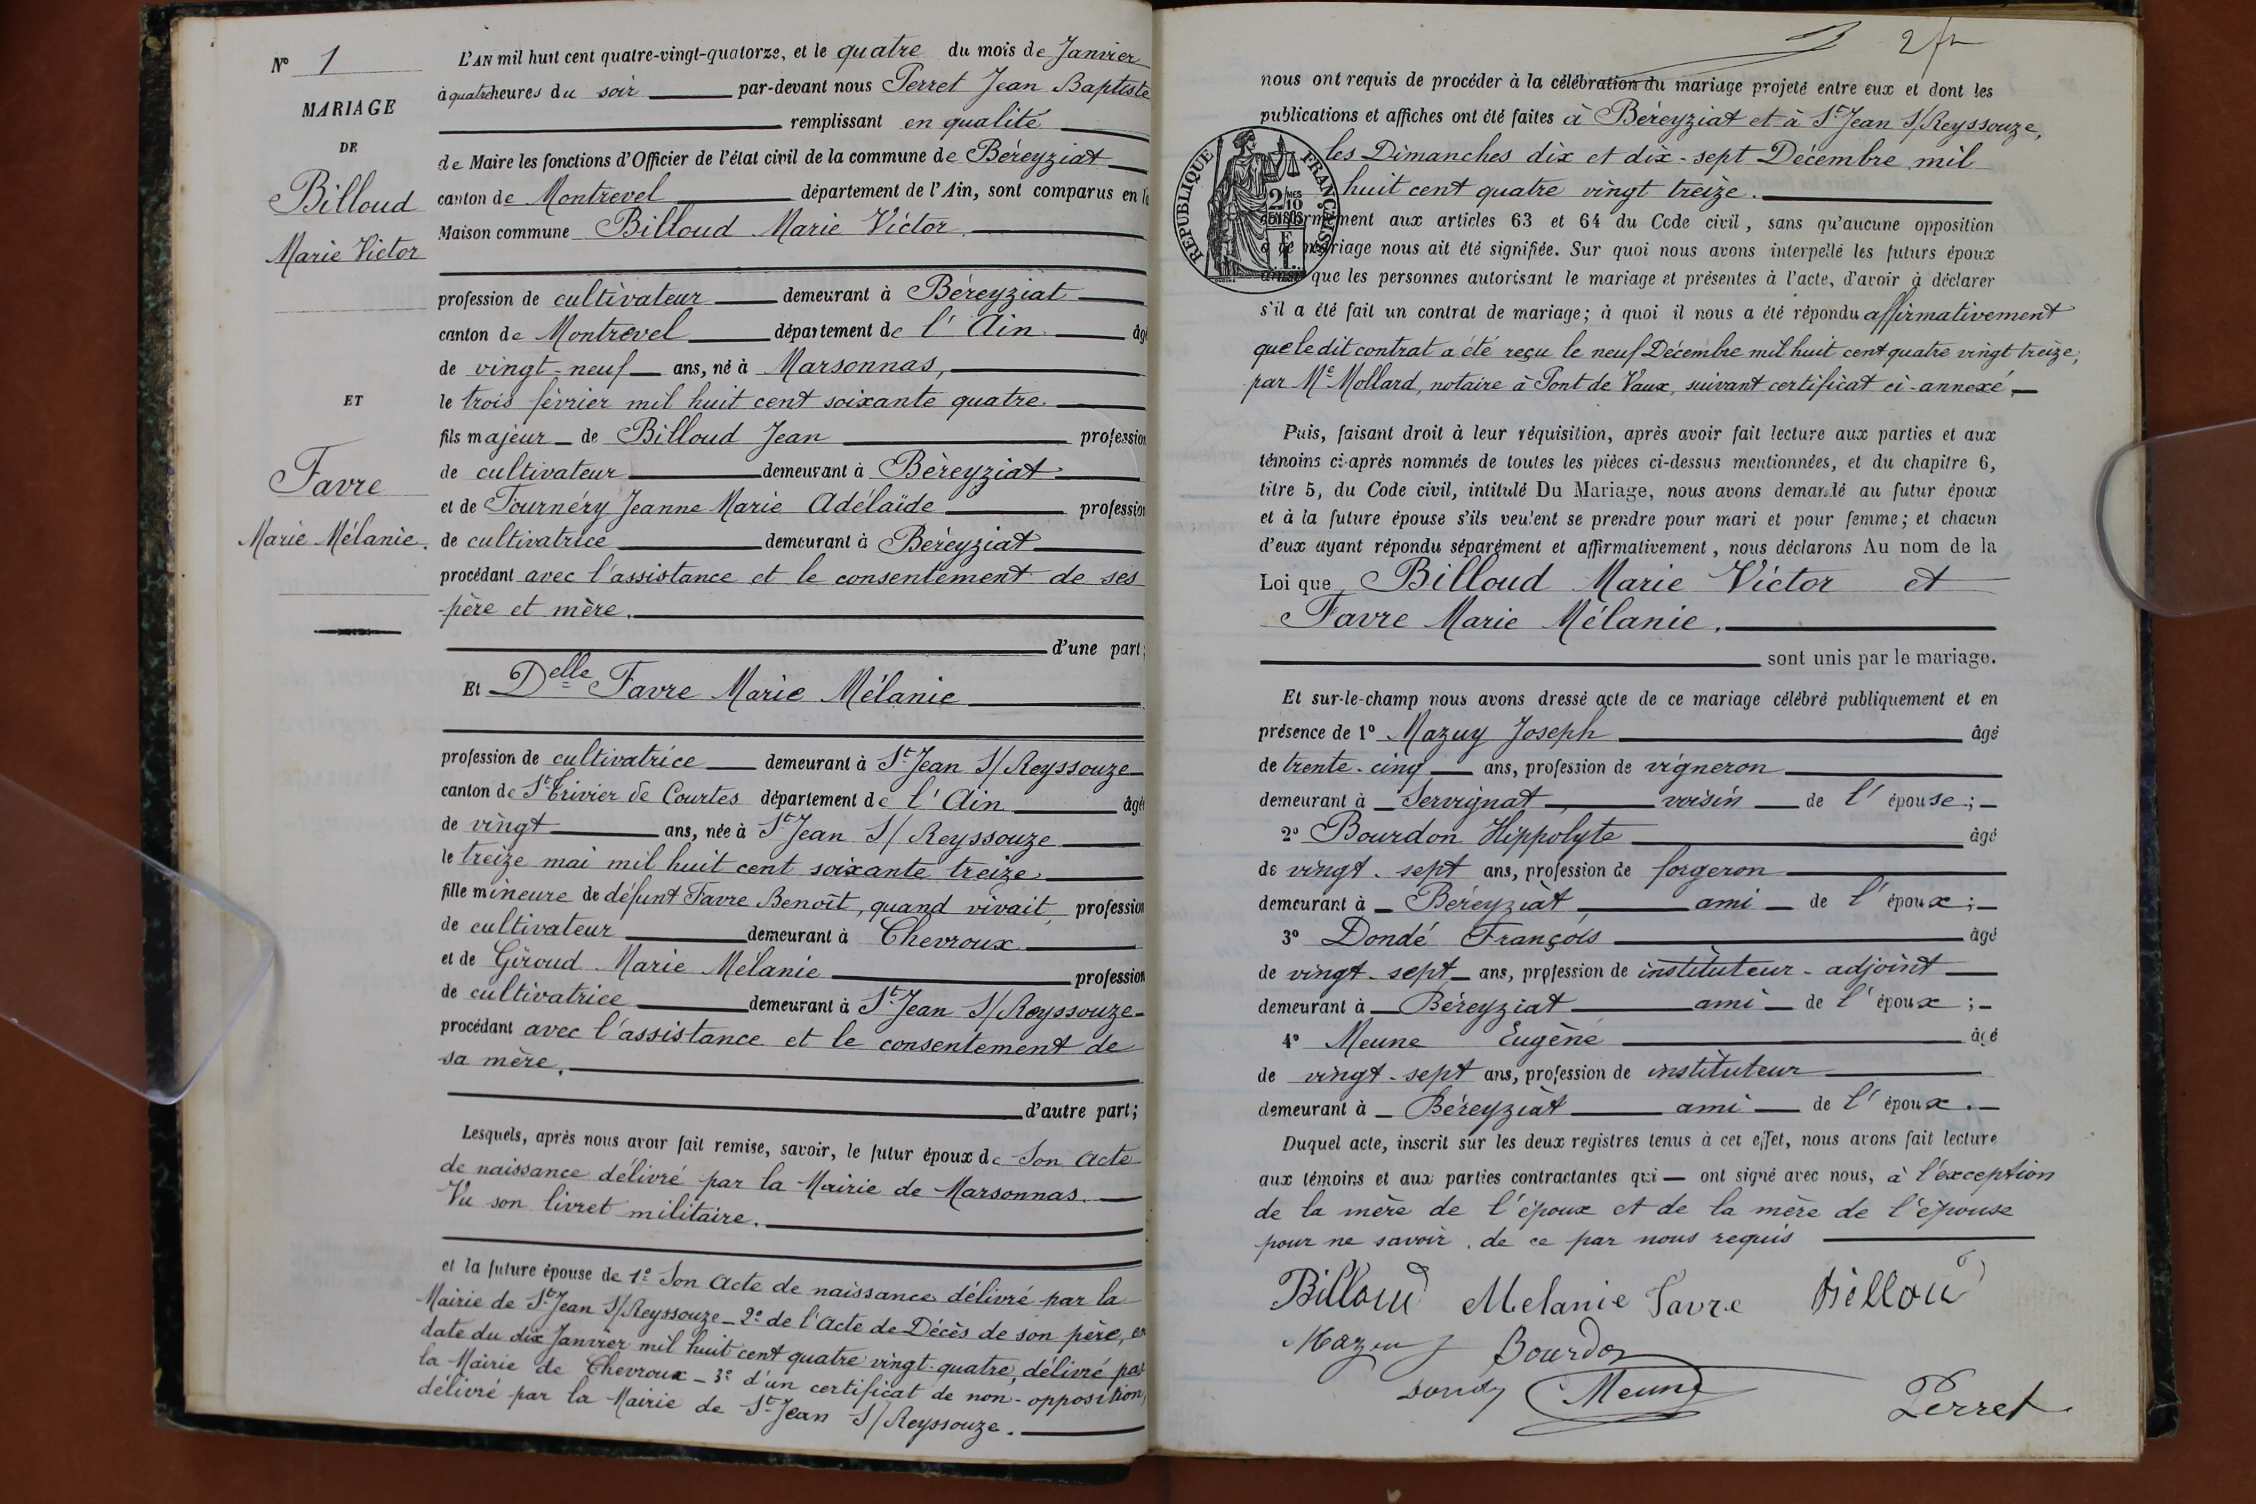 N° 1
MARIAGE
DE
Billoud
Marie Victor
ET
Favre
Marie Mélanie.
L'AN mil huit cent quatre-vingt-quatorze, et le quatre du mois de Janvier
à quatre heures du soir par-devant nous Perret Jean Baptiste
remplissant en qualité
de Maire les fonctions d'Officier de l'état civil de la commune de Béreyziat
canton de Montrevel département de l'Ain, sont comparus en la
Maison commune Billoud Marie Victor
profession de cultivateur demeurant à Béreyziat
canton de Montrevel département de l'Ain âgé
de vingt-neuf ans, né à Marsonnas,
le trois février mil huit cent soixante quatre.
fils majeur de Billoud Jean profession
de cultivateur demeurant à Béreyziat
et de Fournéry Jeanne Marie Adélaïde profession
de cultivatrice demeurant à Béreyziat
procédant avec l'assistance et le consentement de ses
père et mère.
d'une part;
Et Delle Favre Marie Mélanie
profession de cultivatrice demeurant à St Jean S/Reyssouze
canton de St Trivier de Courtes département de l'Ain âgée
de vingt ans, née à St Jean S/Reyssouze
le treize mai mil huit cent soixante treize
fille mineure de défunt Favre Benoît, quand vivait, profession
de cultivateur demeurant à Chevroux
et de Giroud Marie Mélanie profession
de cultivatrice demeurant à St Jean S/Reyssouze
procédant avec l'assistance et le consentement de
sa mère.
d'autre part;
Lesquels, après nous avoir fait remise, savoir, le futur époux de Son Acte
de naissance délivré par la Mairie de Marsonnas.
Vu son livret militaire.
et la future épouse de 1° Son Acte de naissance délivré par la
Mairie de St Jean S/Reyssouze - 2° de l'Acte de Décès de son père, en
date du dix Janvier mil huit cent quatre vingt-quatre, délivré par
la Mairie de Chevroux - 3° d'un certificat de non-opposition,
délivré par la Mairie de St Jean S/Reyssouze.
nous ont requis de procéder à la célébration du mariage projeté entre eux et dont les
publications et affiches ont été faites à Béreyziat et à St Jean S/Reyssouze,
les Dimanches dix et dix-sept Décembre mil
huit cent quatre vingt treize.
RÉPUBLIQUE FRANÇAISE
2/10
conformément aux articles 63 et 64 du Code civil, sans qu'aucune opposition
à ce mariage nous ait été signifiée. Sur quoi nous avons interpellé les futurs époux
ainsi que les personnes autorisant le mariage et présentes à l'acte, d'avoir à déclarer
s'il a été fait un contrat de mariage; à quoi il nous a été répondu affirmativement
que le dit contrat a été reçu le neuf Décembre mil huit cent quatre vingt treize,
par Me Mollard, notaire à Pont de Vaux, suivant certificat ci-annexé,
Puis, faisant droit à leur réquisition, après avoir fait lecture aux parties et aux
témoins ci-après nommés de toutes les pièces ci-dessus mentionnées, et du chapitre 6,
titre 5, du Code civil, intitulé Du Mariage, nous avons demandé au futur époux
et à la future épouse s'ils veulent se prendre pour mari et pour femme; et chacun
d'eux ayant répondu séparément et affirmativement, nous déclarons Au nom de la
Loi que Billoud Marie Victor et
Favre Marie Mélanie.
sont unis par le mariage.
Et sur-le-champ nous avons dressé acte de ce mariage célébré publiquement et en
présence de 1° Mazuy Joseph âgé
de trente-cinq ans, profession de vigneron
demeurant à Servignat, voisin de l'épouse;
2° Bourdon Hippolyte âgé
de vingt-sept ans, profession de forgeron
demeurant à Béreyziat, ami de l'époux;
3° Dondé François âgé
de vingt-sept ans, profession de instituteur-adjoint
demeurant à Béreyziat ami de l'époux;
4° Meune Eugène âgé
de vingt-sept ans, profession de instituteur
demeurant à Béreyziat ami de l'époux.
Duquel acte, inscrit sur les deux registres tenus à cet effet, nous avons fait lecture
aux témoins et aux parties contractantes qui ont signé avec nous, à l'exception
de la mère de l'époux et de la mère de l'épouse
pour ne savoir, de ce par nous requis
Billoud Melanie Favre Billoud
Mazuy Bourdon
Dondé Meune Perret